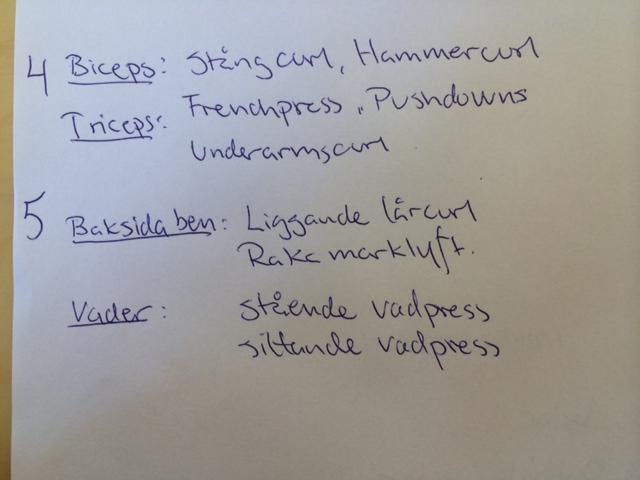 4 Biceps: Stångcurl, Hammercurl
Triceps: Frenchpress, Pushdowns
Underarmscurl
5 Baksida ben: Liggande lårcurl
Raka marklyft.
Vader: stående vadpress
sittande vadpress